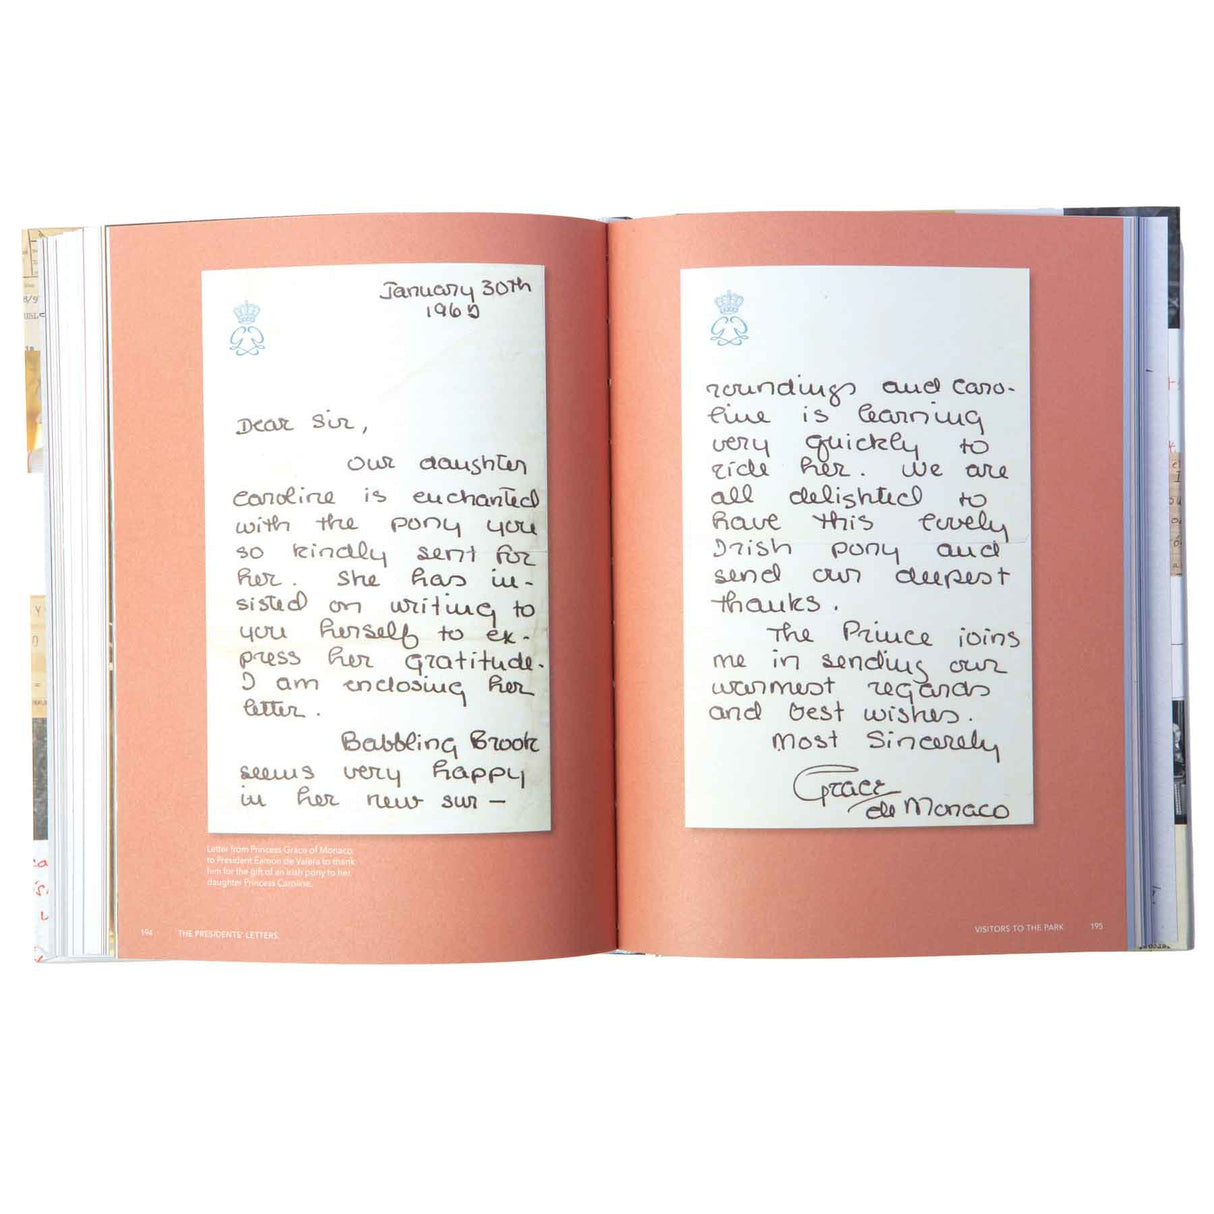 January 30th
196
Dear Sir,
our daughter
Caroline is enchanted
with the pony you
so kindly sent for
her. She has in-
sisted on writing to
you herself to ex-
press her gratitude.
I am enclosing her
letter.
Babbling Brook
seems very happy
in her new sur-
Letter from Princess Grace of Monaco
to President Éamon de Valera to thank
him for the gift of an Irish pony to her
daughter Princess Caroline.
194 THE PRESIDENTS' LETTERS
roundings and Caro-
line is learning
very quickly to
ride her. We are
all delighted to
have this lovely
Irish pony and
send our deepest
thanks.
The Prince joins
me in sending our
warmest regards
and best wishes.
Most Sincerely
Grace
de Monaco
VISITORS TO THE PARK 195